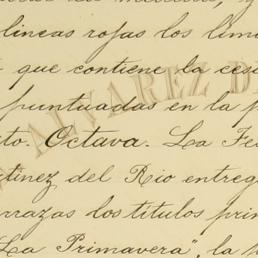 lineas rojas los lim
que contiene la ces
puntuadas en la p
to. Octava. La Fe
tinez del Rio entreg
rrazas los titulos prin
La Primavera", la p
ALVAREZ D